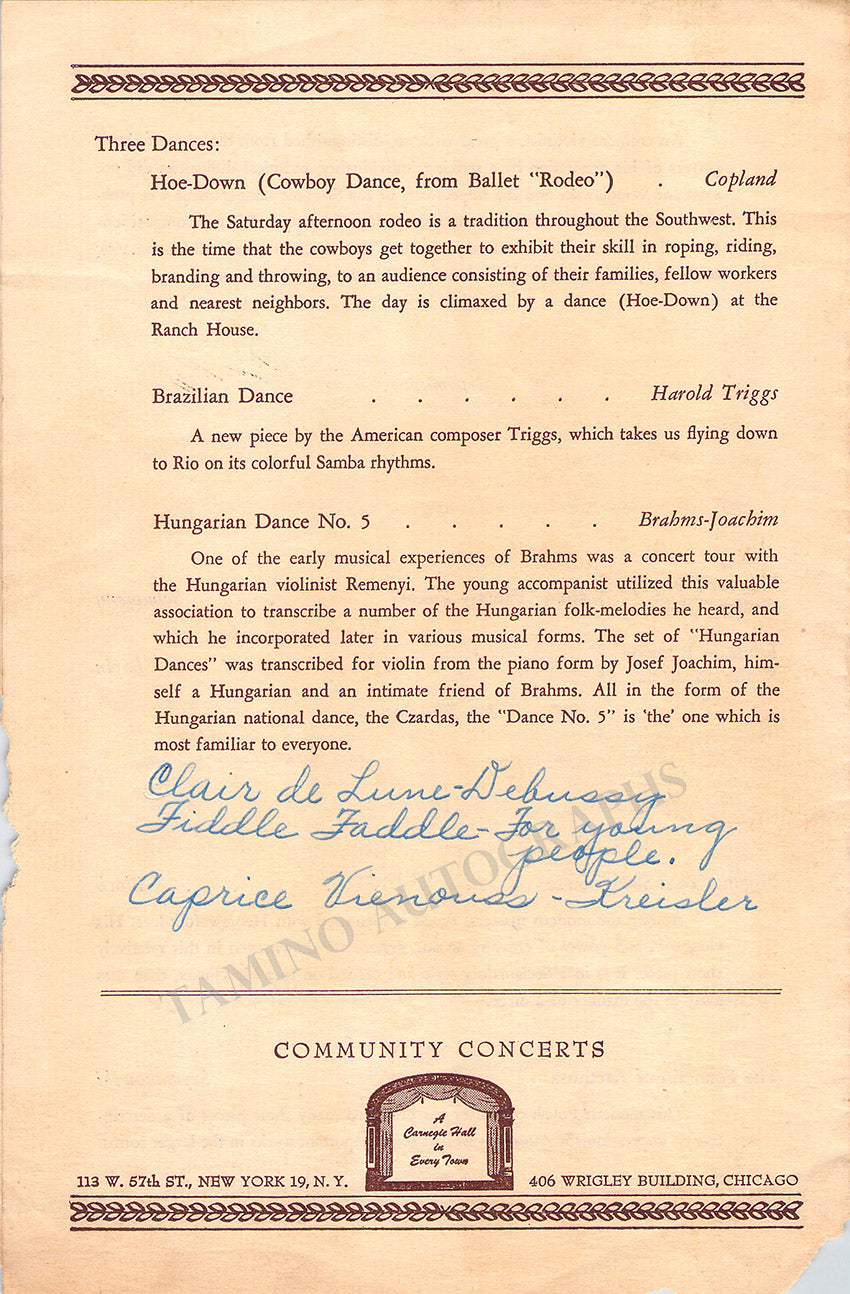 Three Dances:
Hoe-Down (Cowboy Dance, from Ballet "Rodeo") . Copland
The Saturday afternoon rodeo is a tradition throughout the Southwest. This
is the time that the cowboys get together to exhibit their skill in roping, riding,
branding and throwing, to an audience consisting of their families, fellow workers
and nearest neighbors. The day is climaxed by a dance (Hoe-Down) at the
Ranch House.
Brazilian Dance . . . . . . Harold Triggs
A new piece by the American composer Triggs, which takes us flying down
to Rio on its colorful Samba rhythms.
Hungarian Dance No. 5 . . . . . Brahms-Joachim
One of the early musical experiences of Brahms was a concert tour with
the Hungarian violinist Remenyi. The young accompanist utilized this valuable
association to transcribe a number of the Hungarian folk-melodies he heard, and
which he incorporated later in various musical forms. The set of "Hungarian
Dances" was transcribed for violin from the piano form by Josef Joachim, him-
self a Hungarian and an intimate friend of Brahms. All in the form of the
Hungarian national dance, the Czardas, the "Dance No. 5" is 'the' one which is
most familiar to everyone.
Clair de Lune-Debussy
Fiddle Faddle-For young
people.
Caprice Vienouss - Kreisler
TAMINO AUTOGRAPHS
COMMUNITY CONCERTS
A
Carnegie Hall
in
Every Town
113 W. 57th ST., NEW YORK 19, N. Y. 406 WRIGLEY BUILDING, CHICAGO